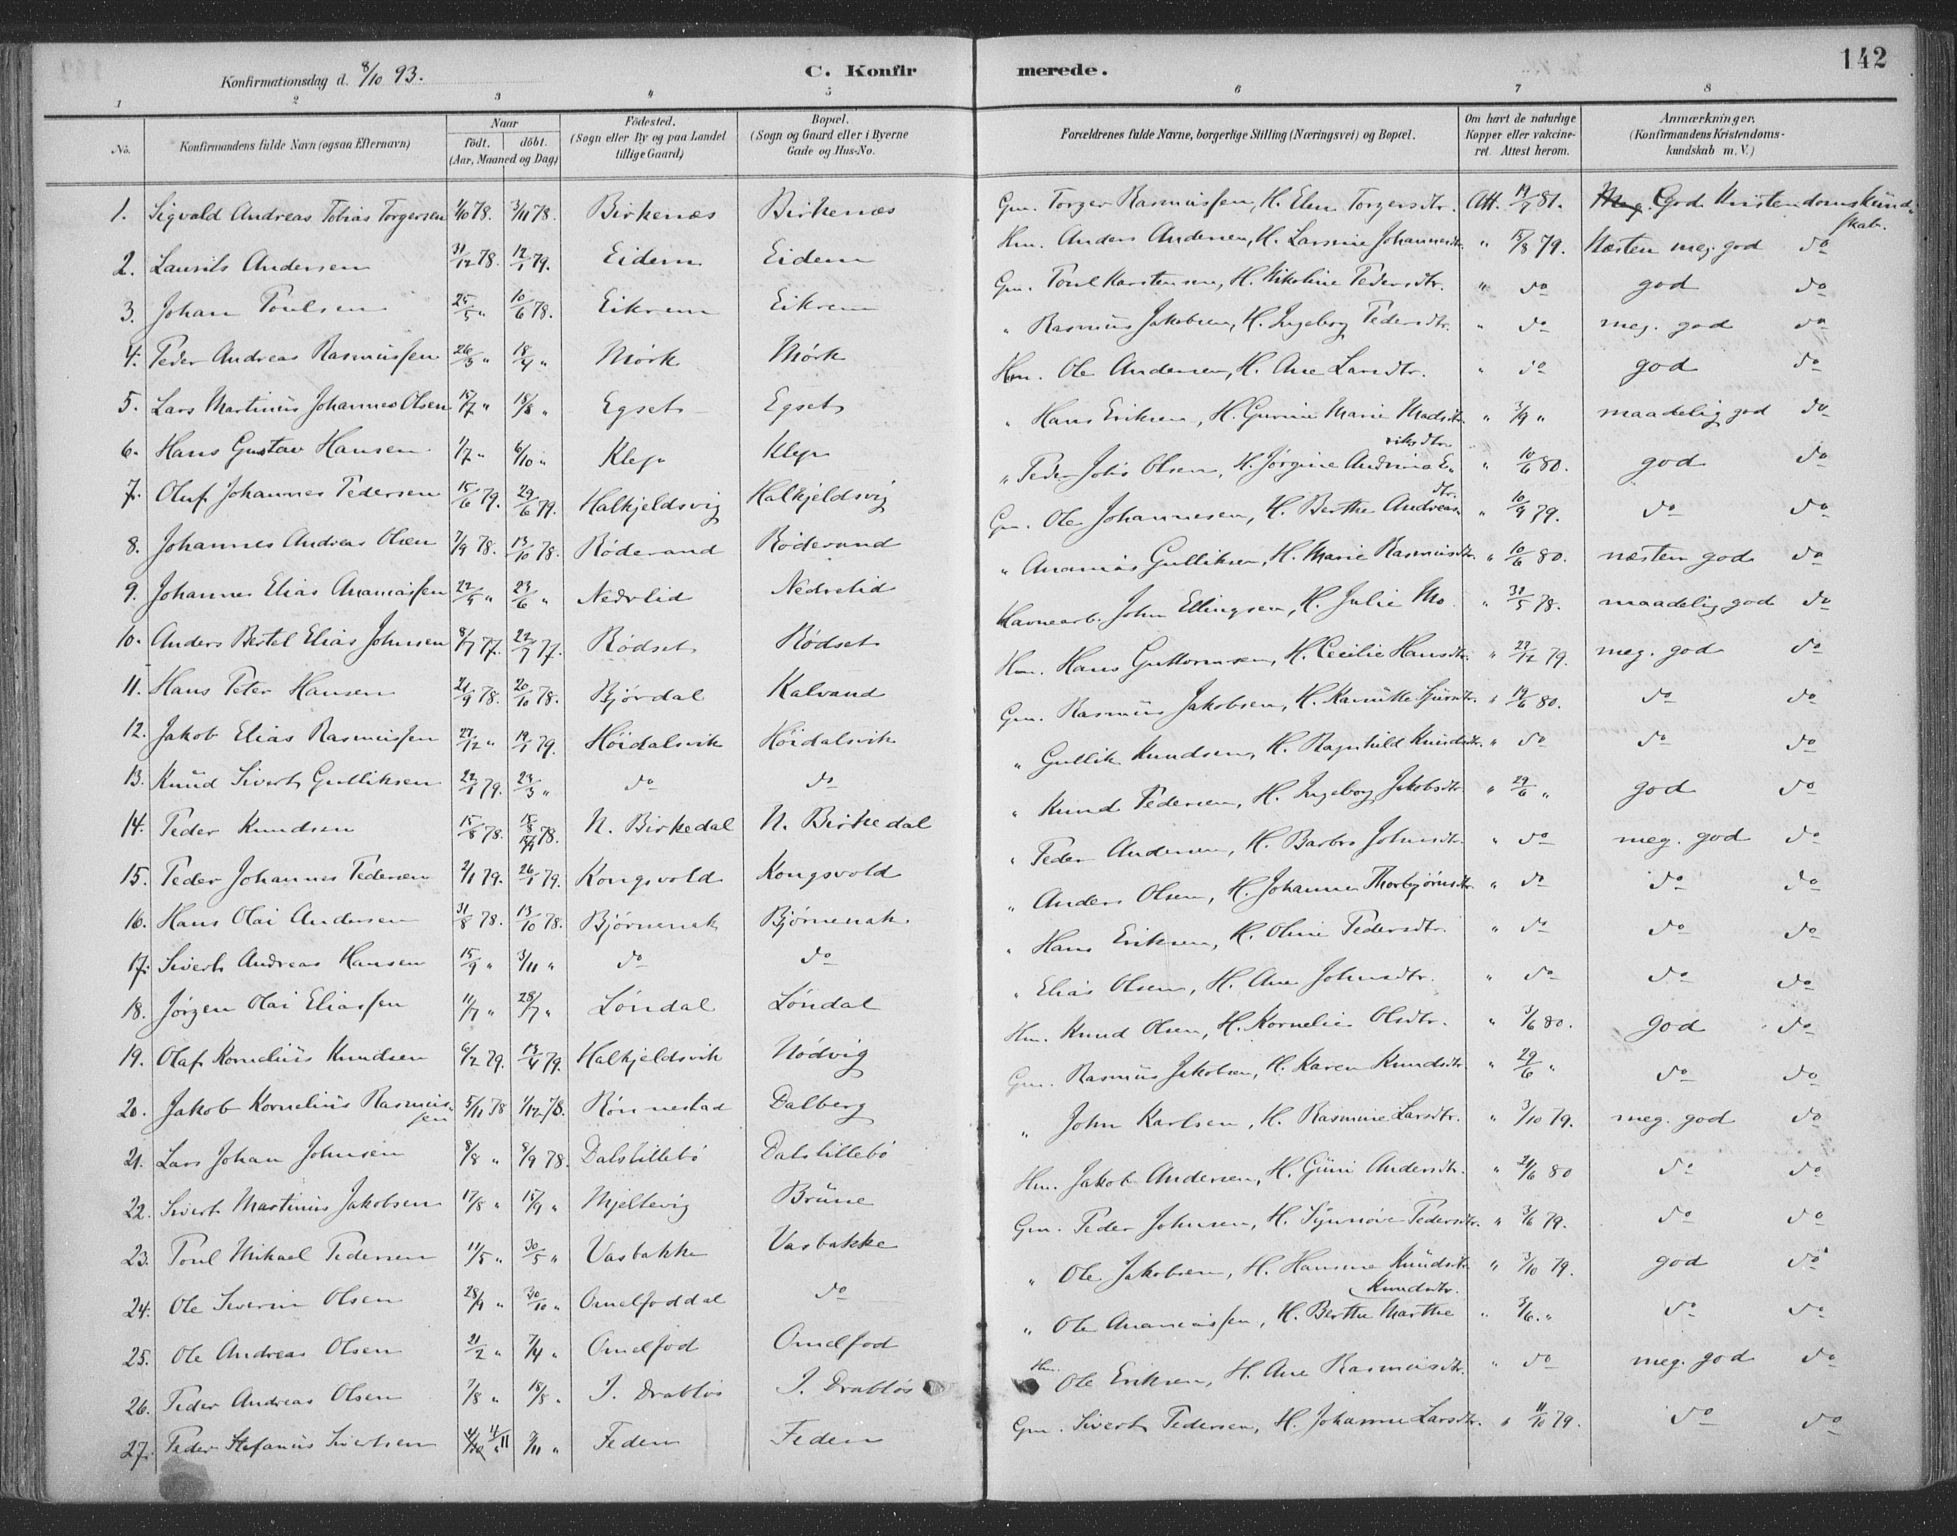 Konfirmationsdag d. 8/10 93.
C. Konfirmerede.
142
1 2 3 4 5 6 7 8
No. Konfirmandens fulde Navn (ogsaa Efternavn) Naar født. døbt. (Aar, Maaned og Dag) Fødested. (Sogn eller By og paa Landet tillige Gaard) Bopæl. (Sogn og Gaard eller i Byerne Gade og Hus-No. Forældrenes fulde Navne, borgerlige Stilling (Næringsvei) og Bopæl. Om havt de naturlige Kopper eller vaccineret. Attest herom. Anmærkninger. (Konfirmandens Kristendomskundskab m. V.)
1. Sigvald Andreas Tobias Torgersen 1/10 78. 3/11 78. Birkenæs Birkenæs Gm. Torger Rasmussen, H. Elen Torgersdtr. Att. 19/7 81. Meg. God Kristendomskundskab.
2. Laurits Andersen 31/12 78. 12/1 79. Eidem Eidem Hm. Anders Andersen, H. Larsine Johannesdtr. " 15/8 79. Næsten meg. god do
3. Johan Poulsen 25/5 " 10/6 78. Eikrem Eikrem Gm. Poul Karstensen, H. Nikoline Pedersdtr. " do god do
4. Peder Andreas Rasmussen 26/3 " 18/4 " Mørk Mørk " Rasmus Jakobsen, H. Ingeborg Pedersdtr. " do meg. god do
5. Lars Martinus Johannes Olsen 15/7 " 18/8 " Egset Egset Hm. Ole Andersen, H. Ane Larsdtr. " do god do
6. Hans Gustav Hansen 1/7 " 6/10 " Klep Klep " Hans Eriksen, H. Gurine Marie Madsdtr. " 3/9 " maadelig god do
7. Oluf Johannes Pedersen 15/6 79. 29/6 79. Halkjeldsvig Halkjeldsvig " Peder Johs Olsen, H. Jørgine Andrina Eriksdtr. " 10/6 80. god do
8. Johannes Andreas Olsen 7/9 78. 13/10 78. Røderand Røderand Gm. Ole Johannesen, H. Berthe Andreasdtr. " 10/9 79. do do
9. Johannes Elias Ananiassen 22/5 " 23/6 " Nedrelid Nedrelid " Ananias Gulliksen, H. Marie Rasmusdtr. " 10/6 80. næsten god do
10. Anders Bertel Elias Johnsen 8/7 77. 22/7 77. Rødset Rødset Havnearb. John Ellingsen, H. Julie Mo " 31/5 78. maadelig god do
11. Hans Peter Hansen 21/9 78. 20/10 78. Bjørdal Kalvand Hm. Hans Guttormsen, H. Cecilie Hansdtr. " 22/12 79. meg. god do
12. Jakob Elias Rasmussen 27/12 " 19/1 79. Høidalsvik Høidalsvik Gm. Rasmus Jakobsen, H. Kanutte " 19/6 80. do do
13. Knud Sivert Gulliksen 22/1 79. 23/3 " do do " Gullik Knudsen, H. Ragnhild Knudsdtr. " do do do
14. Peder Knudsen 15/8 78. 15/8 78. N. Birkedal N. Birkedal " Knud Pedersen, H. Ingeborg Jakobsdtr. " 29/6 " god do
15. Peder Johannes Pedersen 2/1 79. 26/1 79. Kongsvold Kongsvold " Peder Andersen, H. Barbro Johnsdtr. " do meg. god do
16. Hans Olai Andersen 31/8 78. 13/10 78. Bjørnenak Bjørnenak " Anders Olsen, H. Johanne Thorbjørnsdtr. " do do do
17. Sivert Andreas Hansen 15/9 " 3/11 " do do " Hans Eriksen, H. Oline Pedersdtr. " do do do
18. Jørgen Olai Eliassen 11/7 " 28/7 " Løndal Løndal " Elias Olsen, H. Ane Johnsdtr. " do do do
19. Olaf Kornelius Knudsen 6/2 79. 13/4 79. Halkjeldsvik Nødvig Hm. Knud Olsen, H. Kornelie Olsdtr. " 3/6 80. god do
20. Jakob Kornelius Rasmussen 5/11 78 1/12 78. Rønnestad Dalberg Gm. Rasmus Jakobsen, H. Karen Knudsdtr. " 29/6 " do do
21. Lars Johan Johnsen 8/8 " 8/9 78. Dalslillebø Dalslillebø " John Karlsen, H. Rasmine Larsdtr. " 3/10 79. meg. god do
22. Sivert Martinus Jakobsen 17/8 " 15/9 " Mjeltevig Brune Hm. Jakob Andersen, H. Guri Andersdtr. " 21/6 80 do do
23. Poul Mikael Pedersen 11/5 " 30/5 " Vasbakke Vasbakke Gm. Peder Johnsen, H. Synnøve Pedersdtr. " 3/6 79. do do
24. Ole Severin Olsen 28/9 " 30/10 " Omelfoddal do " Ole Jakobsen, H. Hansine Knudsdtr. " 3/10 79. god do
25. Ole Andreas Olsen 21/2 " 7/4 " Omelfod Omelfod " Ole Ananiassen, H. Berthe Marthe Knudsdtr. " 3/6 " do do
26. Peder Andreas Olsen 7/8 " 18/8 " I. Drabløs I. Drabløs Hm. Ole Eriksen, H. Ane Rasmusdtr. " do meg. god do
27. Peder Stefanus Sivertsen 4/11 " Fedem Fedem Gm. Sivert Pedersen, H. Johanne Larsdtr. " 11/10 79. do do